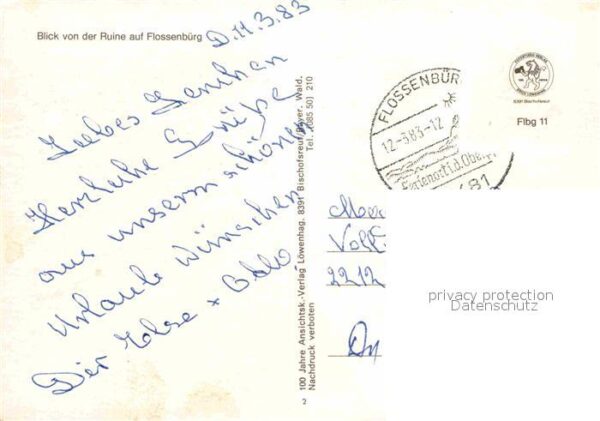 Blick von der Ruine auf Flossenbürg
D. 11.3.83
Liebes
Herzliche Grüße
aus unserm schönen
Urlaub wünschen
Dir + Otto
100 Jahre Ansichtsk.-Verlag Löwenhag, 8391 Bischofsreut/Bayer. Wald,
Tel. (085 50) 210
Nachdruck verboten
2
FLOSSENBÜR
12-3.83-12
Ferienort i.d. Obe
481
8391 Bischofsreut
Flbg 11
2212
privacy protection
Datenschutz